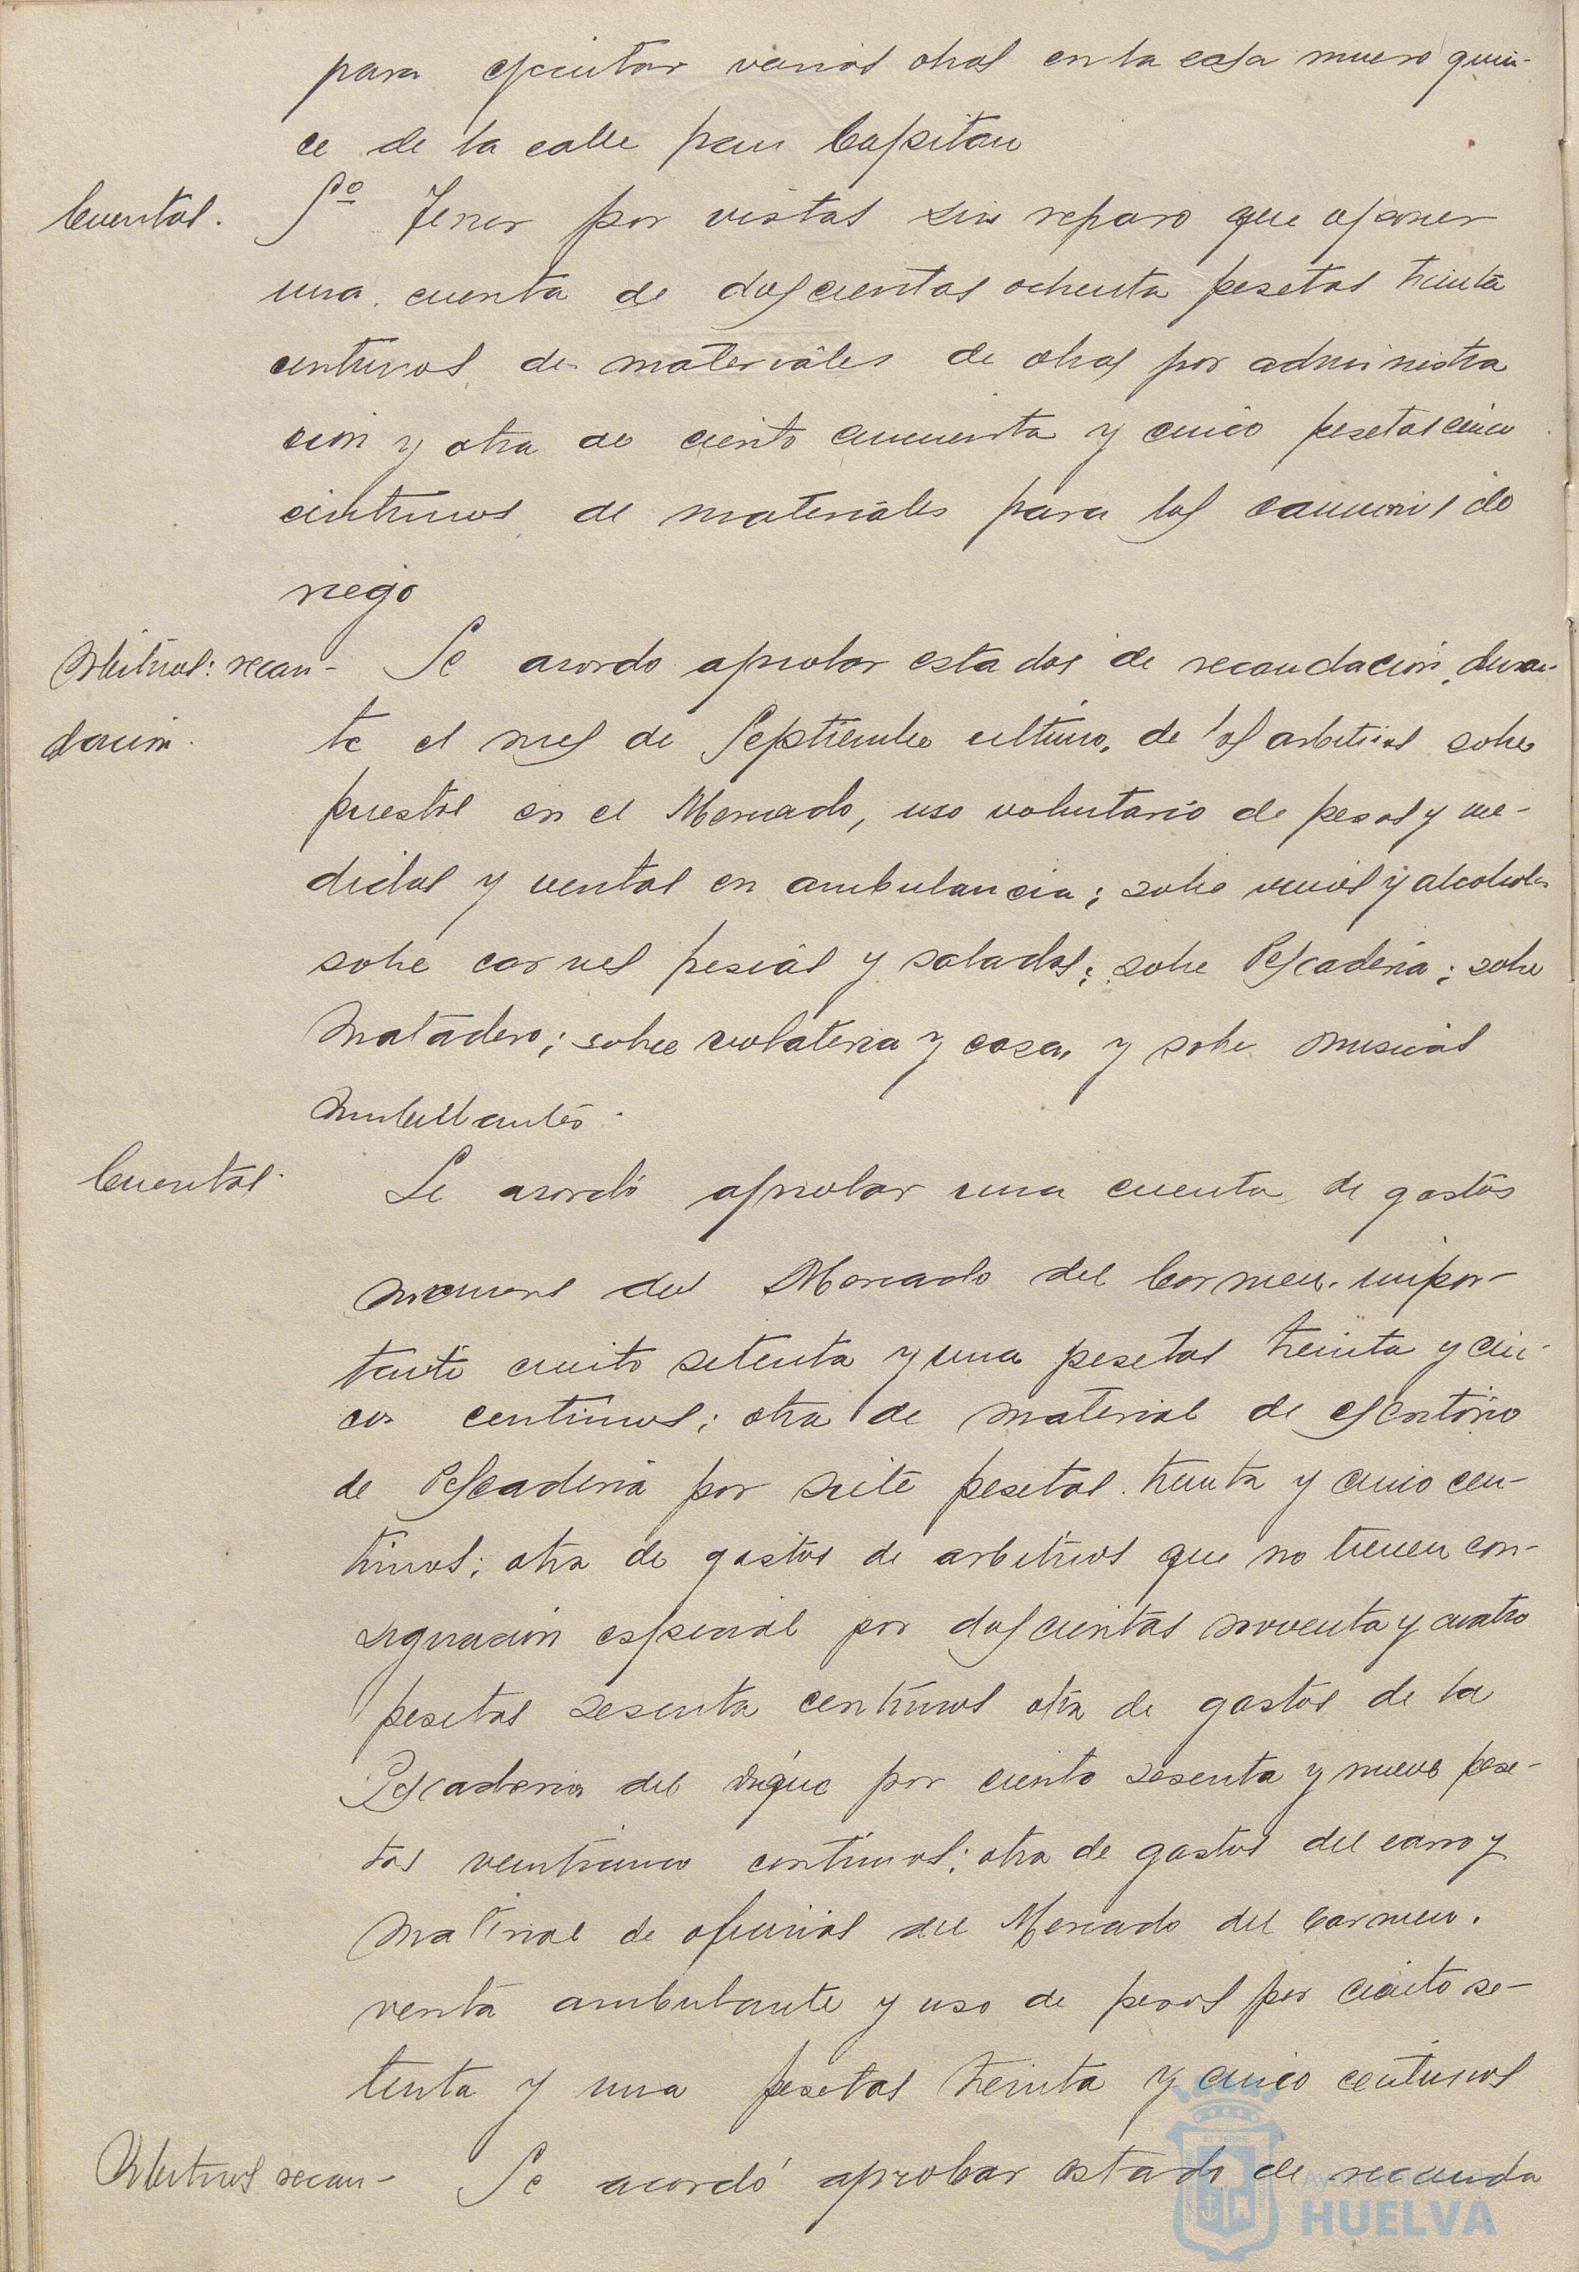 para ejecutar varias obras en la casa numero quin-
ce de la calle Gran Capitan
Cuentas. Sº Tener por vistas sin reparo que oponer
una cuenta de doscientas ochenta pesetas treinta
centimos de materiales de obras por administra
cion y otra de ciento cincuenta y cinco pesetas cinco
centimos de materiales para los camiones de
riego
Arbitrios: recau- Se acordo aprobar estados de recaudacion, duran-
dacion. te el mes de Septiembre ultimo, de los arbitrios sobre
puestos en el Mercado, uso voluntario de pesas y me-
didas y ventas en ambulancia; sobre vinos y alcoholes
sobre carnes frescas y saladas; sobre Pescaderia; sobre
Matadero; sobre volateria y caza, y sobre musicas
ambulantes.
Cuentas. Se acordó aprobar una cuenta de gastos
menores del Mercado del Carmen, impor-
tante ciento setenta y una pesetas treinta y cin-
co centimos; otra de material de escritorio
de Pescaderia por siete pesetas treinta y cinco cen-
timos; otra de gastos de arbitrios que no tienen con-
signacion especial por doscientas noventa y cuatro
pesetas sesenta centimos otra de gastos de la
Pescaderia del dique por ciento sesenta y nueve pese-
tas veinticinco centimos; otra de gastos del carro y
material de oficinas del Mercado del Carmen.
venta ambulante y uso de pesas por ciento se-
tenta y una pesetas treinta y cinco centimos
Arbitrios recau- Se acordó aprobar estado de recauda
HUELVA